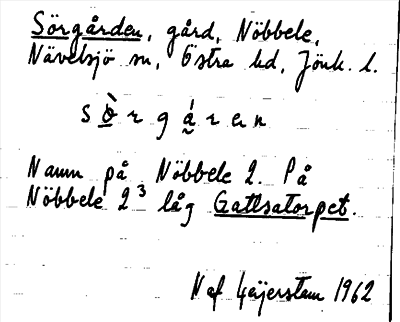 Sörgården, gård, Nöbbele,
Nävelsjö sn, Östra hd, Jönk. l.
s ö̀ r g á r e n
Namn på Nöbbele 2. På
Nöbbele 2³ låg Gatlsatorpet.
N af Geijerstam 1962